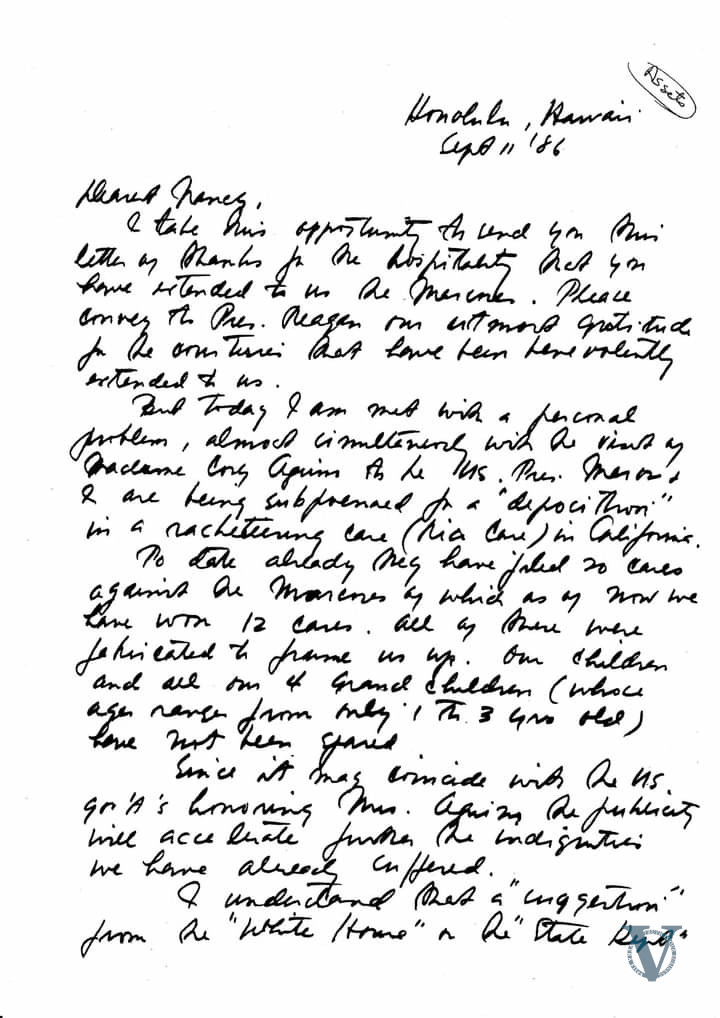 Assets
Honolulu, Hawaii
Sept 11 '86
Dearest Nancy,
I take this opportunity to send you this
letter of thanks for the hospitality that you
have extended to us the Marcoses. Please
convey to Pres. Reagan our utmost gratitude
for the courtesies that have been benevolently
extended to us.
But today I am met with a personal
problem, almost simultaneously with the visit of
Madame Cory Aquino to the US. Pres. Marcos &
I are being subpoenaed for a "deposition"
in a racketeering case (Rico Case) in California.
To date already they have filed 20 cases
against the Marcoses of which as of now we
have won 12 cases. All of these were
fabricated to frame us up. Our children
and all our 4 Grand children (whose
ages ranges from only 1 to 3 yrs old)
have not been spared
Since it may coincide with the US.
gov't's honoring Mrs. Aquino the publicity
will accelerate further the indignities
we have already suffered.
I understand that a "suggestion"
from the "White House" or the "State Dept"
V